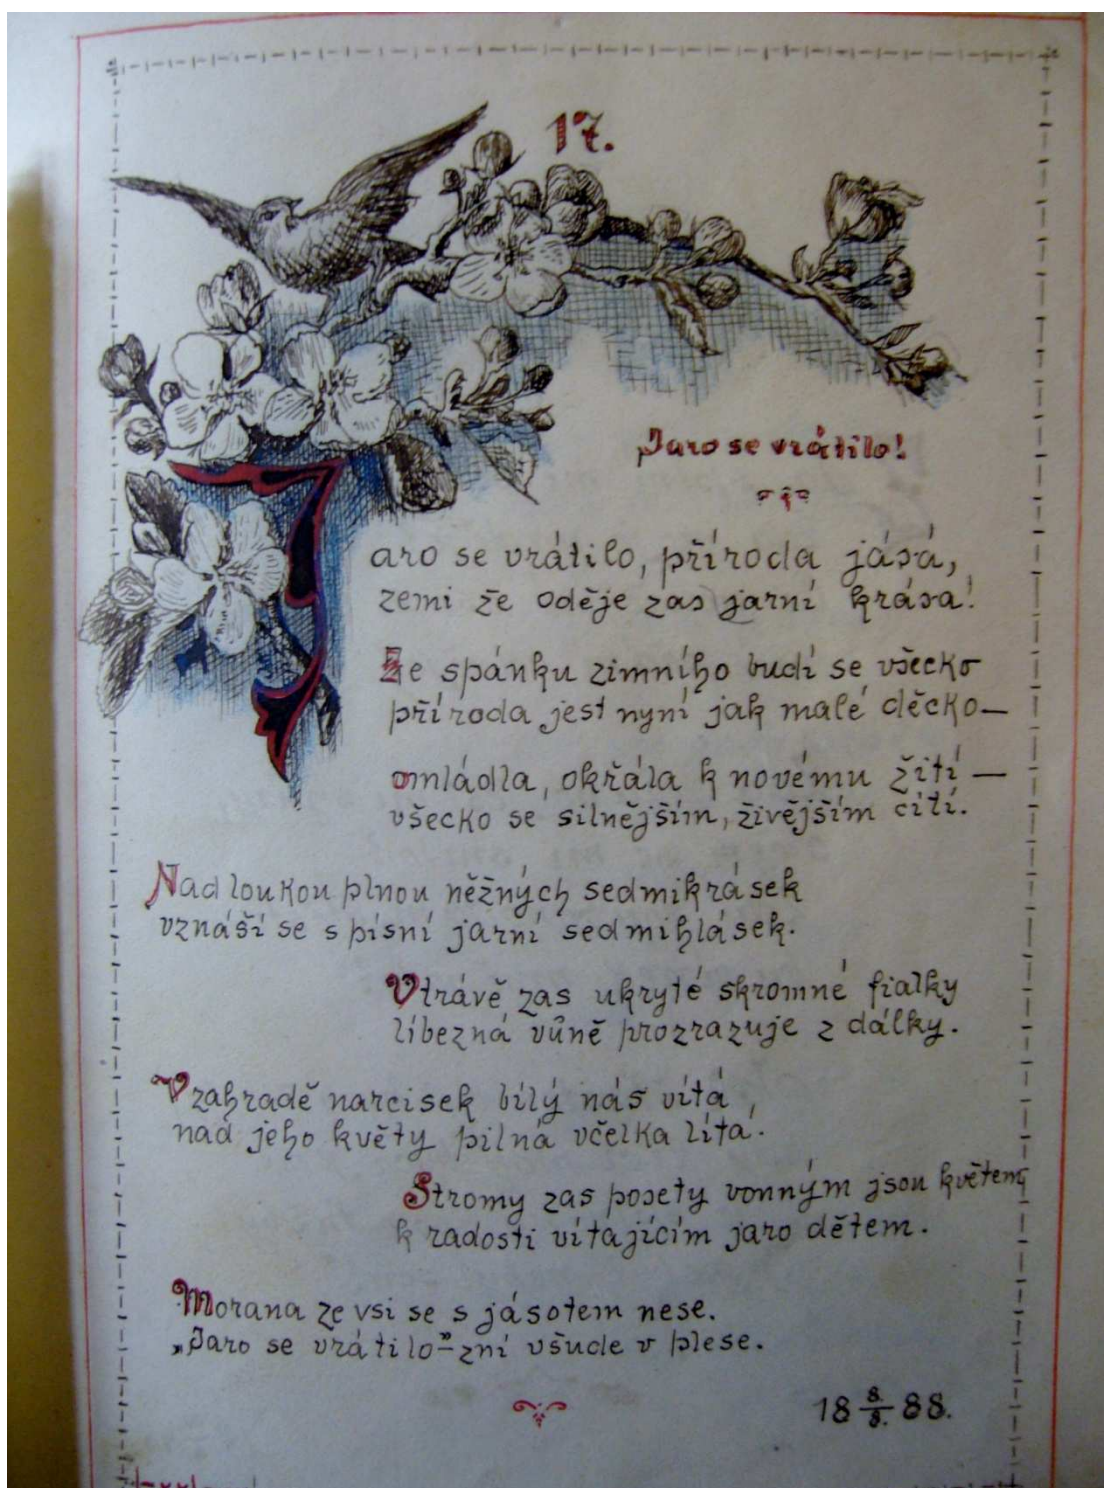 17.
Jaro se vrátilo!
Jaro se vrátilo, příroda jásá,
zemi že oděje zas jarní krása!
Ze spánku zimního budí se všecko
příroda jest nyní jak malé děcko—
omládla, okřála k novému žití —
všecko se silnějším, živějším cítí.
Nad loukou plnou něžných sedmikrásek
vznáší se s písní jarní sedmihlásek.
V trávě zas ukryté skromné fialky
líbezná vůně prozrazuje z dálky.
V zahradě narcisek bílý nás vítá,
nad jeho květy pilná včelka lítá.
Stromy zas posety vonným jsou květem
k radosti vítajícím jaro dětem.
Morana ze vsi se s jásotem nese.
„Jaro se vrátilo"-zní všude v plese.
18 8./8. 88.